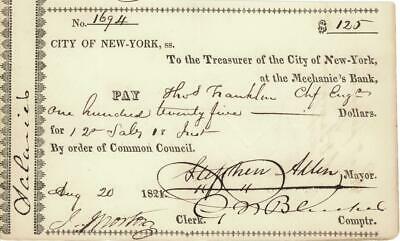 No. 1694 $ 125
CITY OF NEW-YORK, ss.
To the Treasurer of the City of New-York,
at the Mechanic's Bank,
PAY Thos Franklin Chf Engr
one hundred twenty five Dollars.
for Saly
By order of Common Council.
Stephen Allen Mayor.
Aug 20 1821.
J. Morton Clerk. Comptr.
Salaries